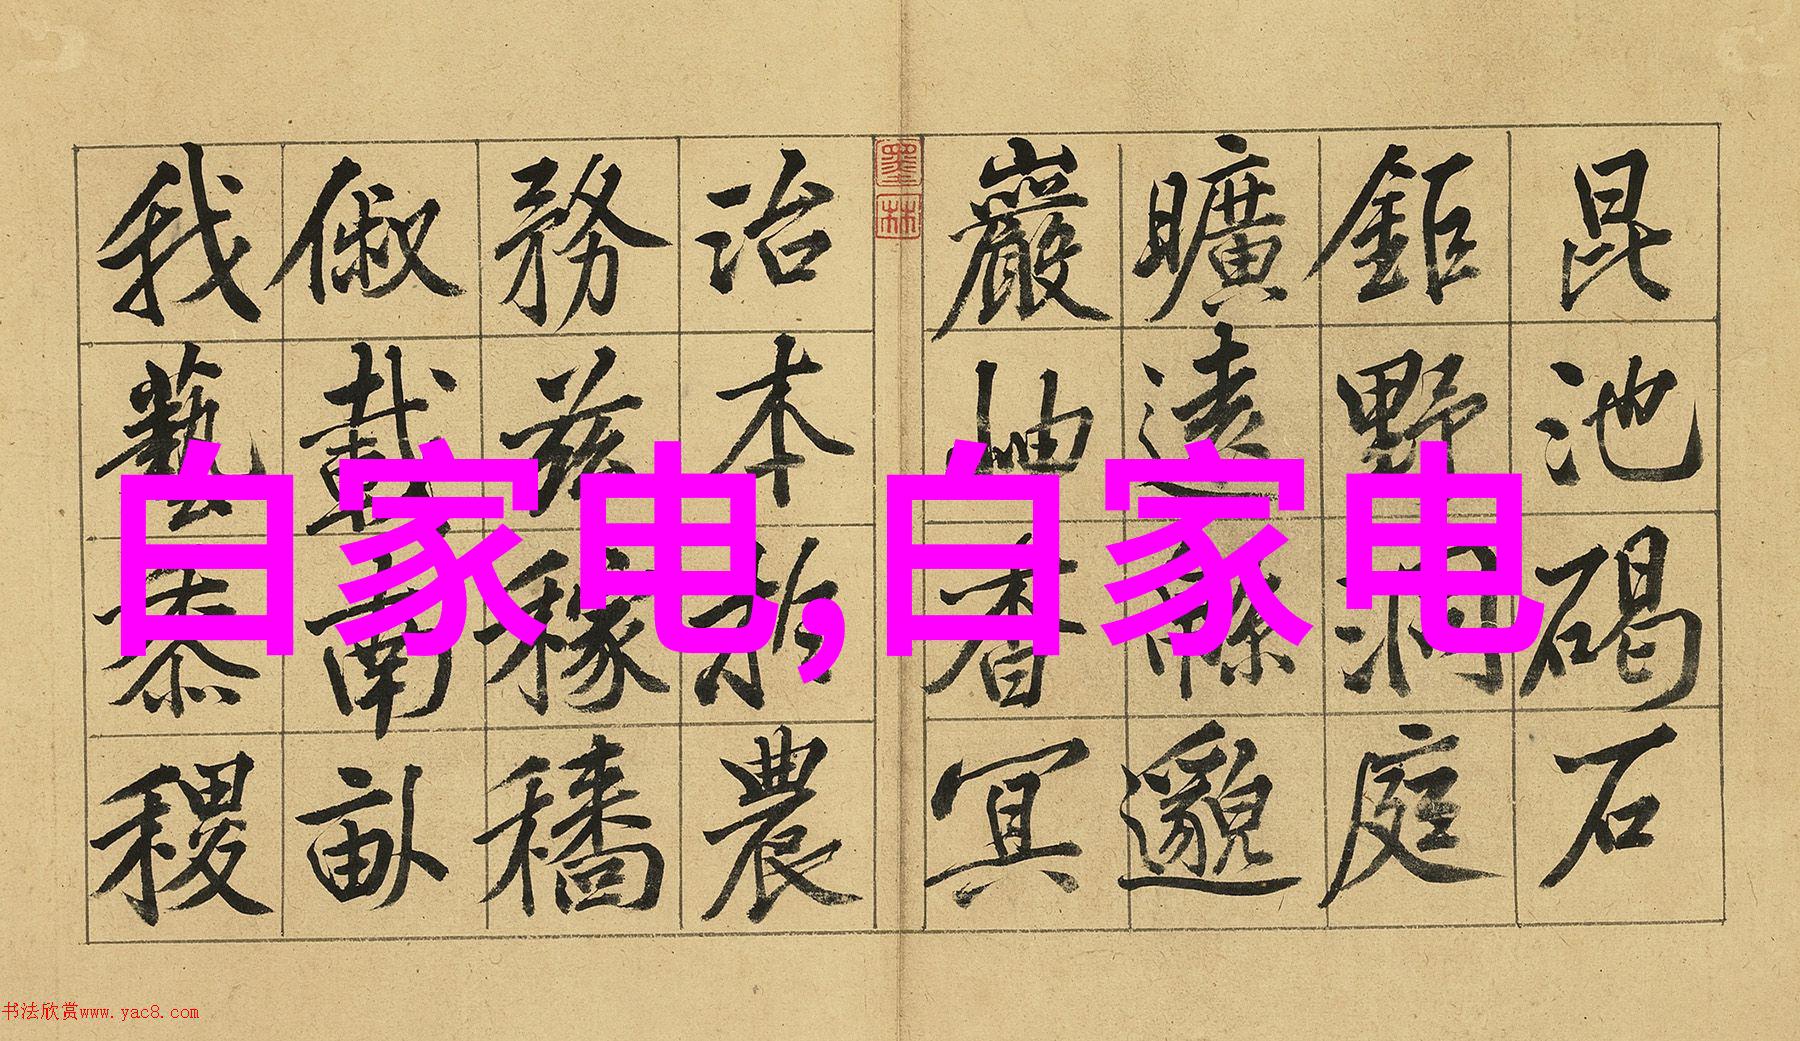 昆池碣石
鉅野洞庭
曠遠緜邈
巖岫杳冥
墨林
治本於農
務茲稼穡
俶載南畝
我藝黍稷
自家电,自家电
书法欣赏www.yac8.com